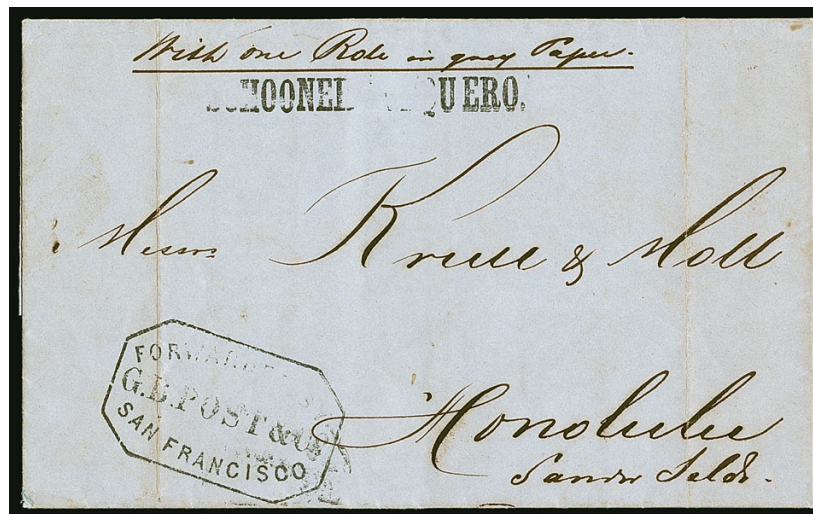 With one Role in grey Paper.
SCHOONER VAQUERO.
Messrs Krull & Moll
Honolulu
Sandw Islds.
FORWARDED BY
G.B. POST & Co
SAN FRANCISCO